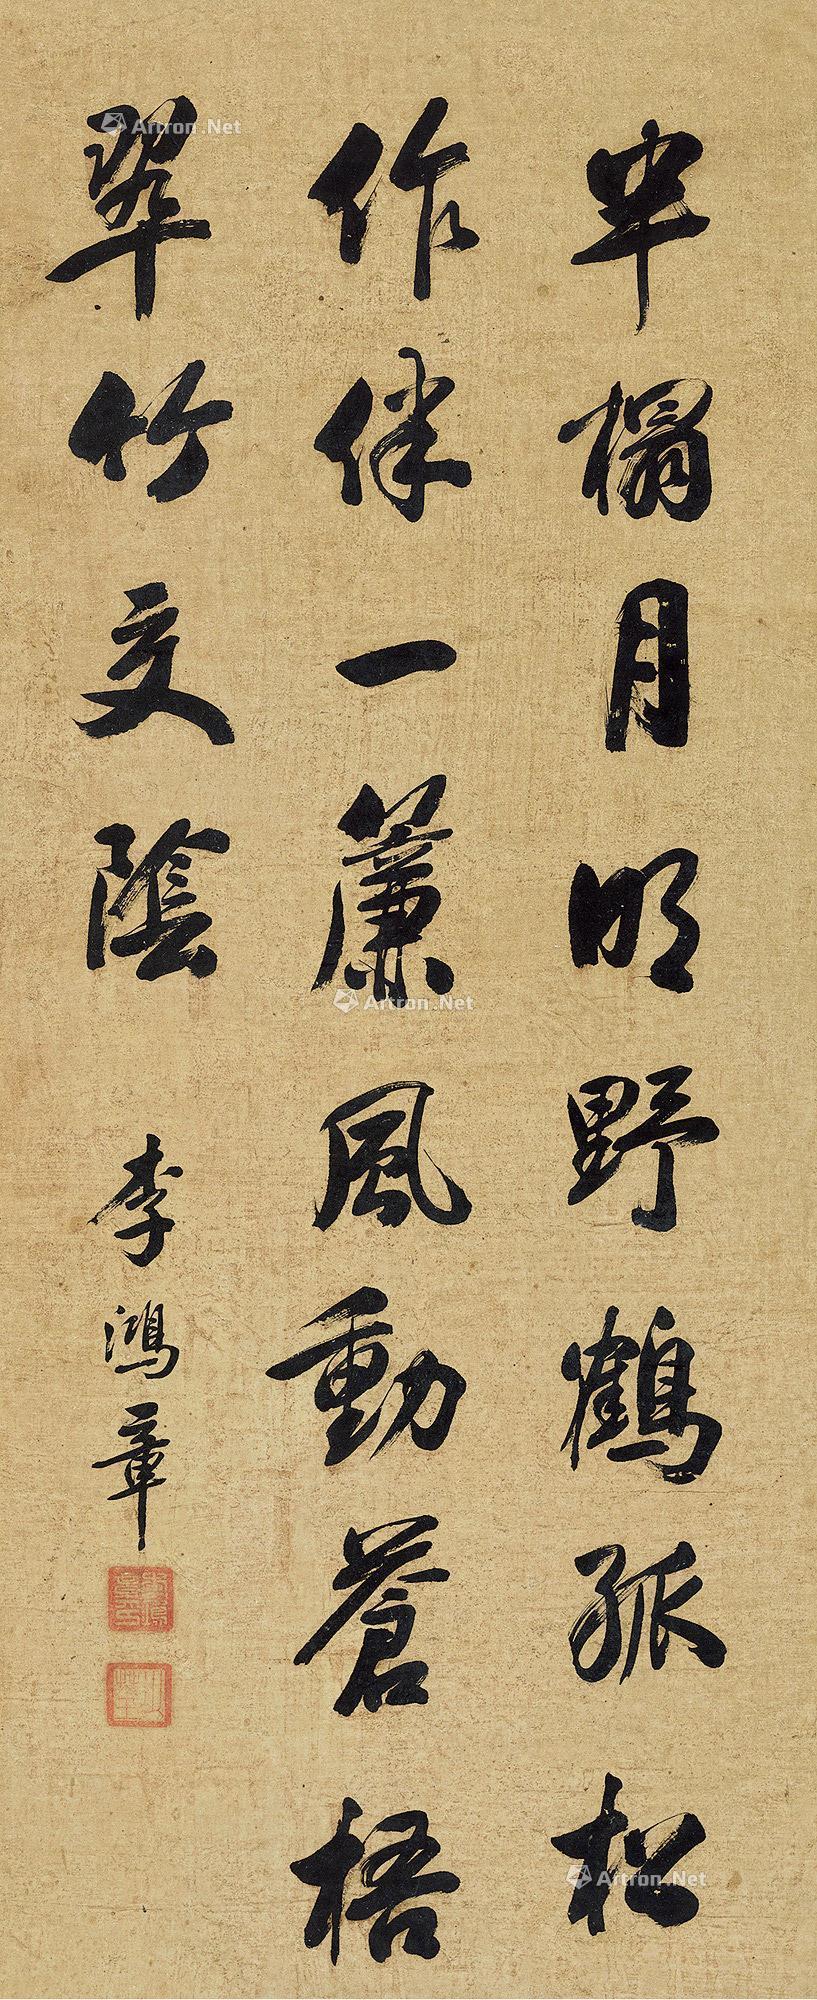 半榻月明野鶴孤松
作伴一簾風動蒼梧
翠竹交陰
李鴻章
Artron.Net
Artron.Net
Artron.Net